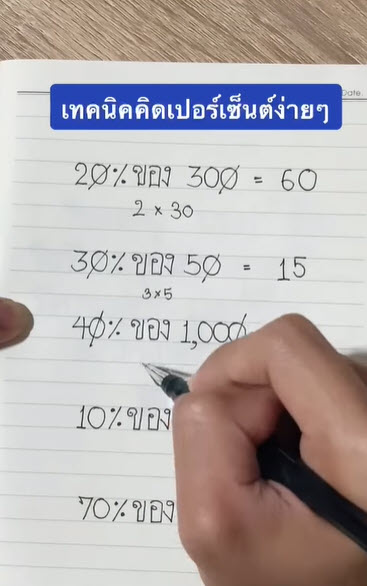 Date.
เทคนิคคิดเปอร์เซ็นต์ง่ายๆ
20% ของ 300 = 60
2 × 30
30% ของ 50 = 15
3×5
40% ของ 1,000
10% ของ
70% ของ